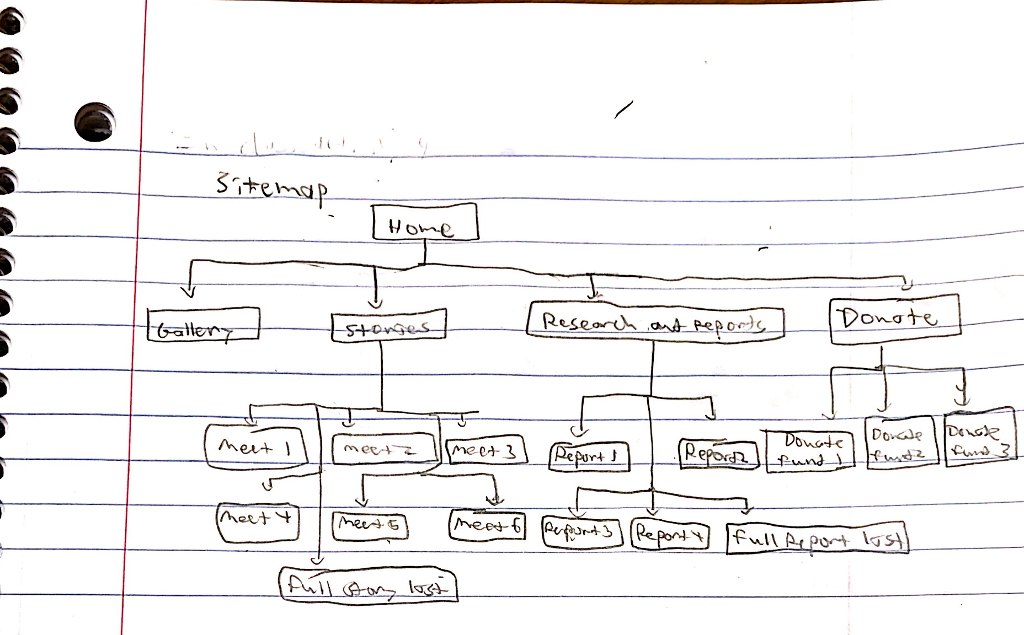 Sitemap
Home
Gallery
Stories
Research and reports
Donate
Meet 1
meet 2
meet 3
Report 1
Report2
Donate
fund 1
Donate
fund2
Donate
fund 3
Meet 4
Meet 5
Meet 6
Report3
Report 4
full Report list
full story list